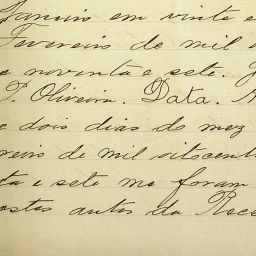 Janeiro em vinte e
Fevereiro de mil o
e noventa e sete. J
P. Oliveira. Data. A
e dois dias do mez
reiro de mil oitocent
ta e sete me foram
ostos autos da Rece